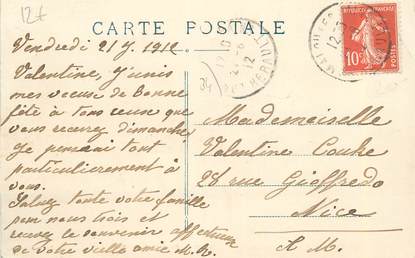 12€
CARTE POSTALE
Vendredi 21/7 1912
Valentine, J'unis
mes vœux de Bonne
fête à tous ceux que
vous recevrez dimanche
Je penserai tout
particulièrement à
vous.
Saluez toute votre famille
pour nous trois et
recevez le souvenir affectueux
de votre vieille amie M. R.
34
REPUBLIQUE FRANÇAISE
10c
POSTES
12
Mademoiselle
Valentine
28 rue Gioffredo
Nice
A M.